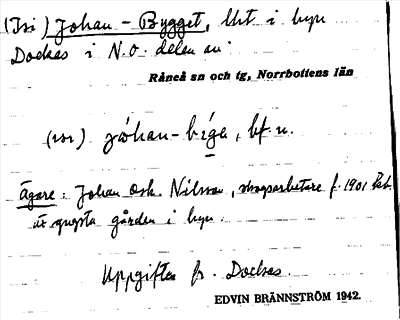 (Isi) Johan-Bygget, lht i byn
Dockas i N.O. delen av
Råneå sn och tg, Norrbottens län
jòhan-býge, bf n.
ägare: Johan Osk. Nilsson, skogsarbetare f. 1901
är yngsta gården i byn.
Uppgifter fr. Dockas.
EDVIN BRÄNNSTRÖM 1942.